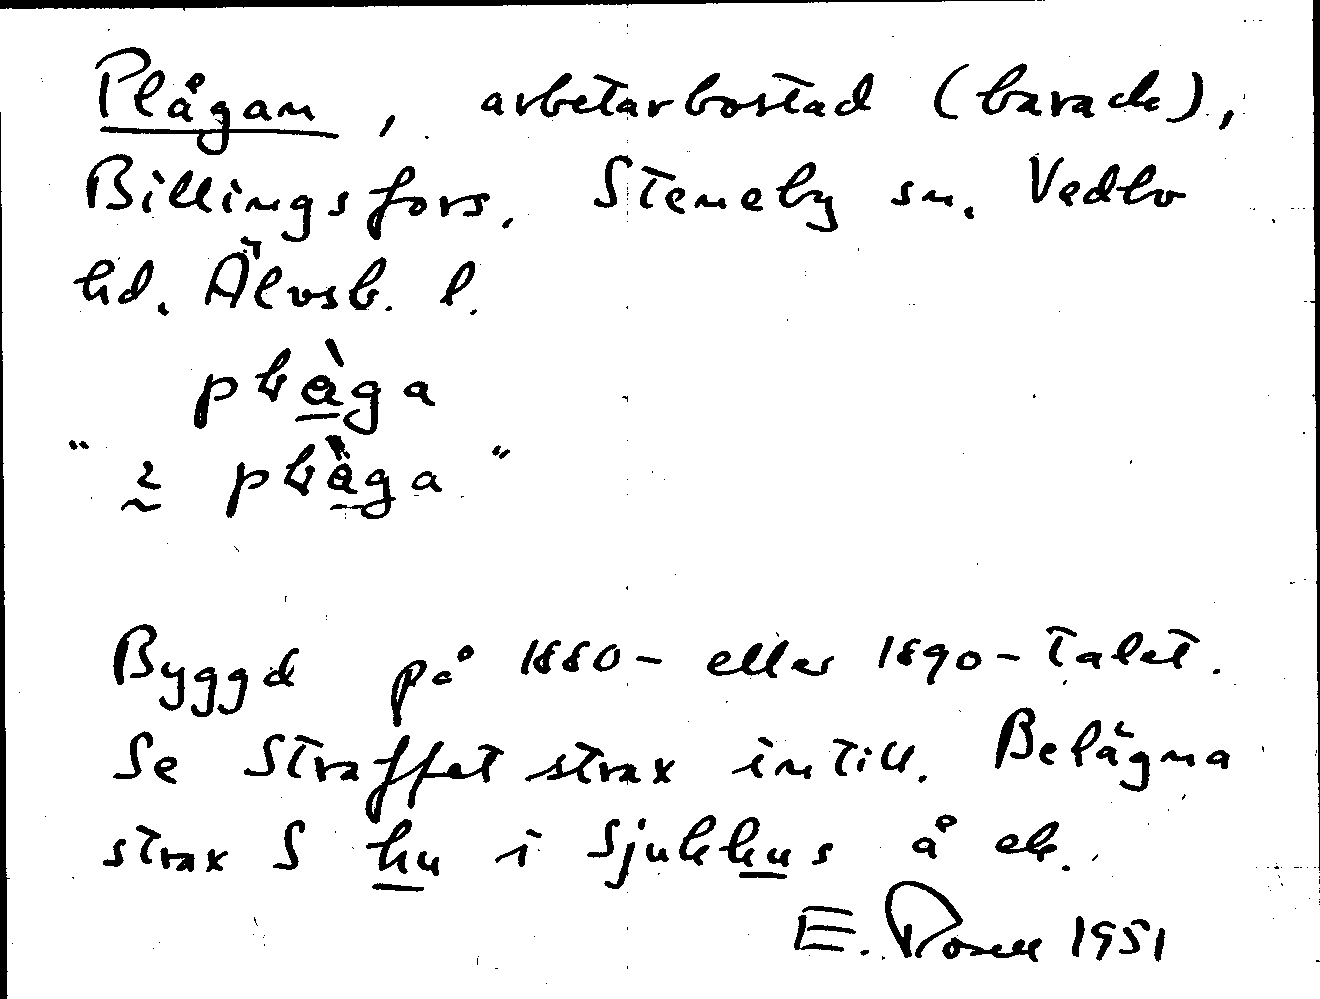 Plågan, arbetarbostad (barack),
Billingsfors. Steneby sn. Vedbo
hd. Älvsb. l.
plåga
"i plåga"
Byggd på 1880- eller 1890-talet.
Se Straffet strax intill. Belägna
strax S hu i Sjukhus å ek.
E. Rosell 1951